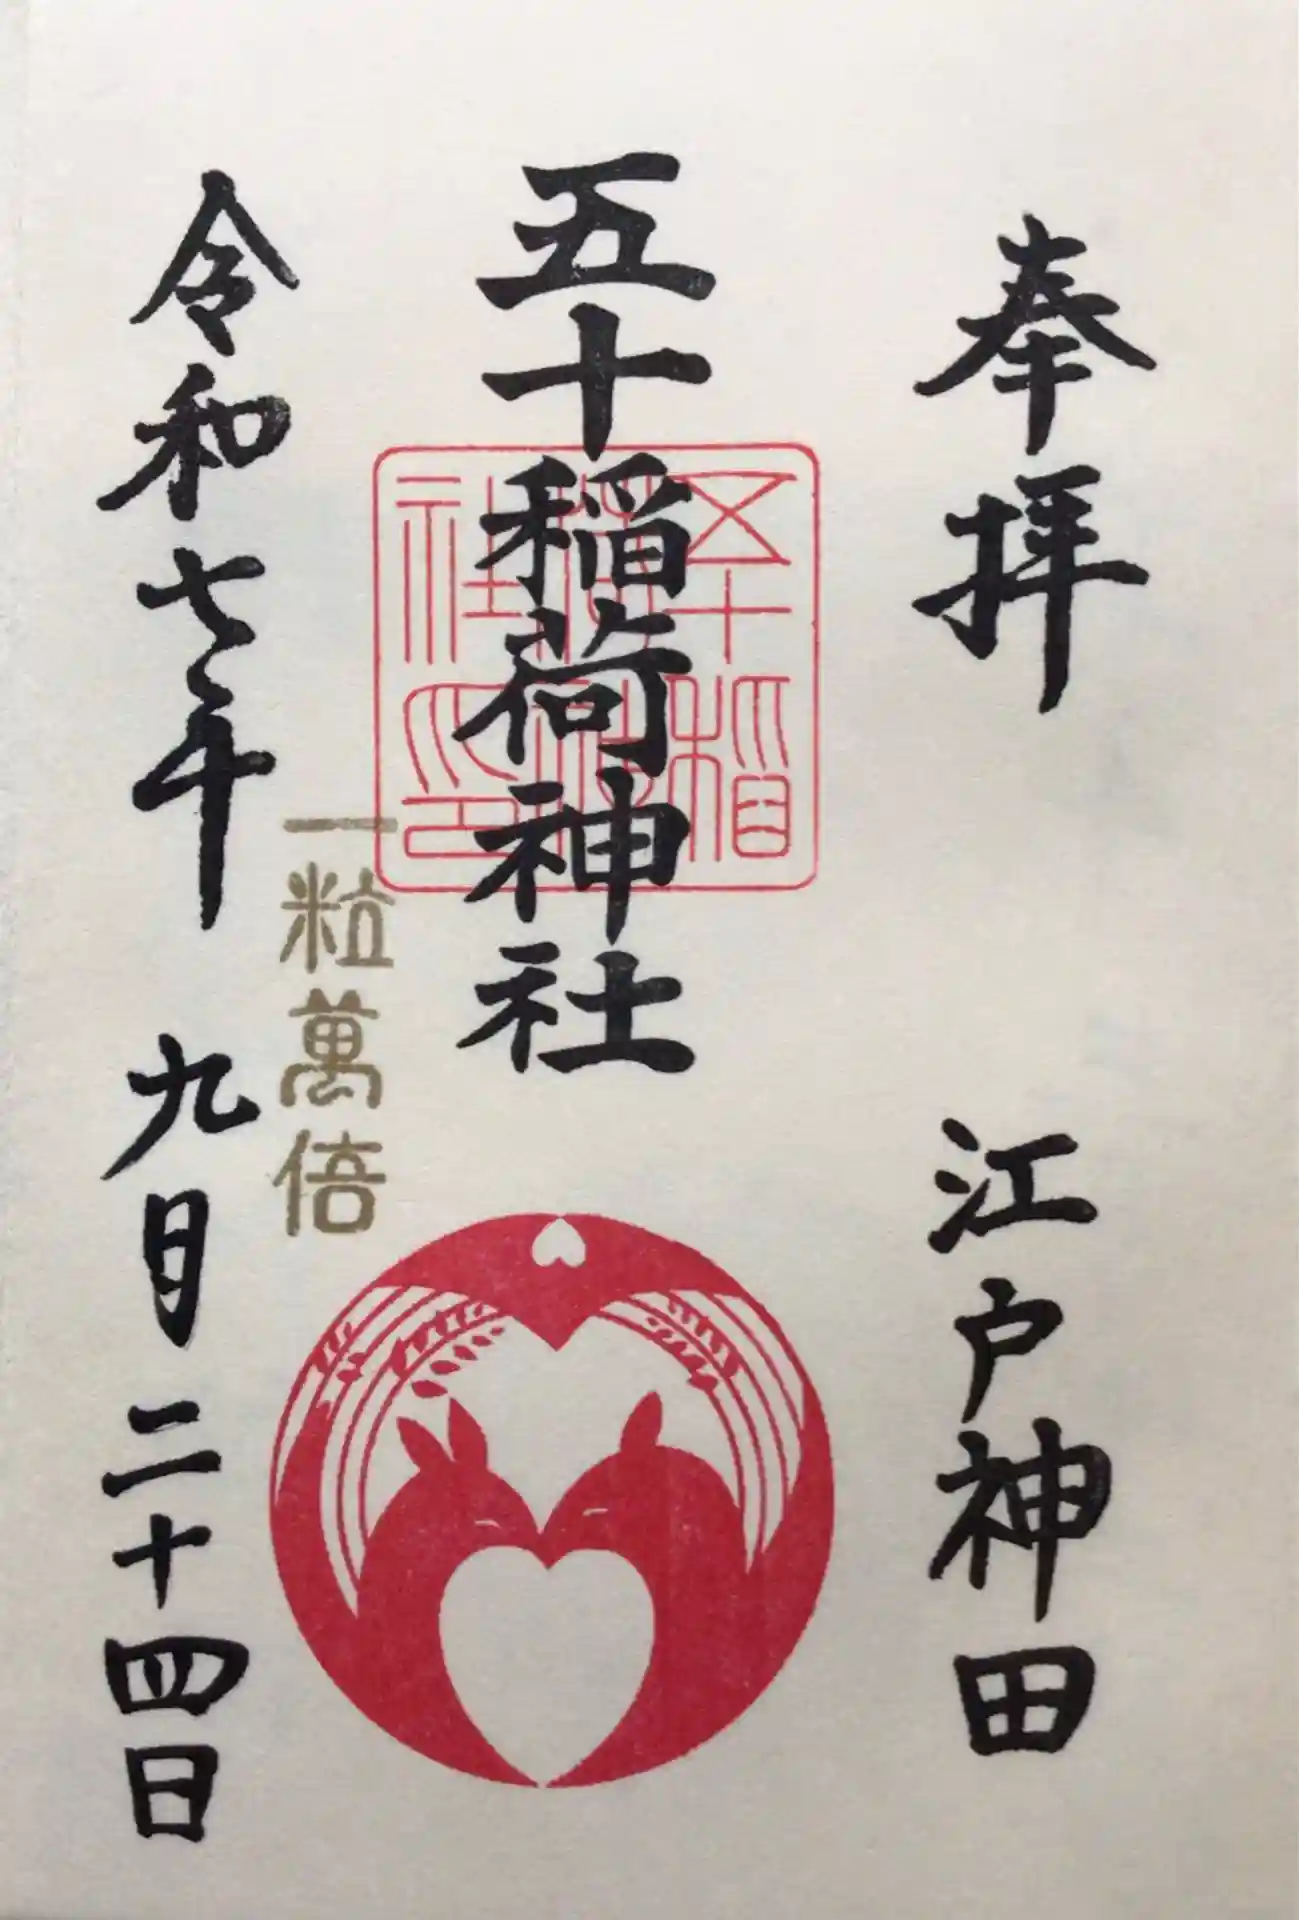 奉拝　江戸神田
五十稲荷神社
五十稲荷神社印
一粒萬倍
令和七年　九月二十四日